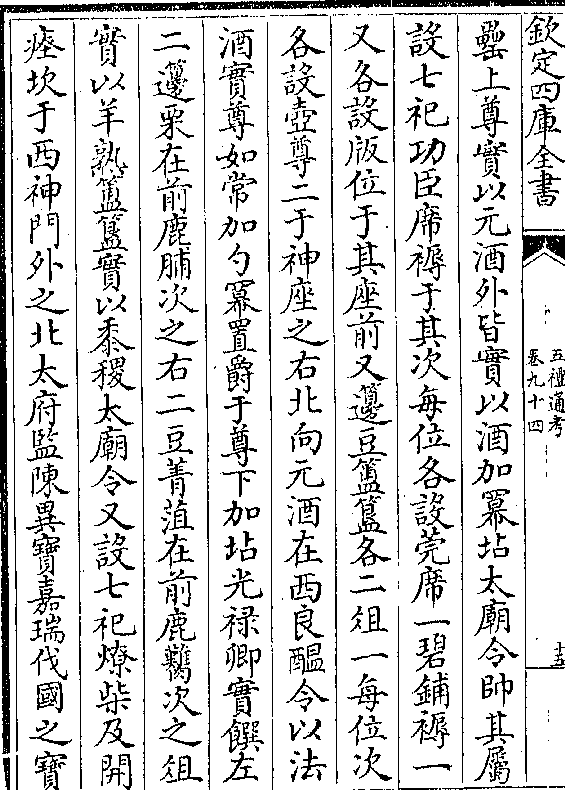 欽定四庫全書
五禮通考
卷九十四
十五
罍上尊實以元酒外皆實以酒加冪坫太廟令帥其屬
設七祀功臣席褥于其次每位各設莞席一碧鋪褥一
又各設版位于其座前又籩豆簠簋各二俎一每位次
各設壺尊二于神座之右北向元酒在西良醖令以法
酒實尊如常加勺冪置爵于尊下加坫光禄卿實饌左
二籩栗在前鹿脯次之右二豆菁菹在前鹿臡次之俎
實以羊熟簠簋實以黍稷太廟令又設七祀燎柴及開
瘞坎于西神門外之北太府監陳異寶嘉瑞伐國之寶